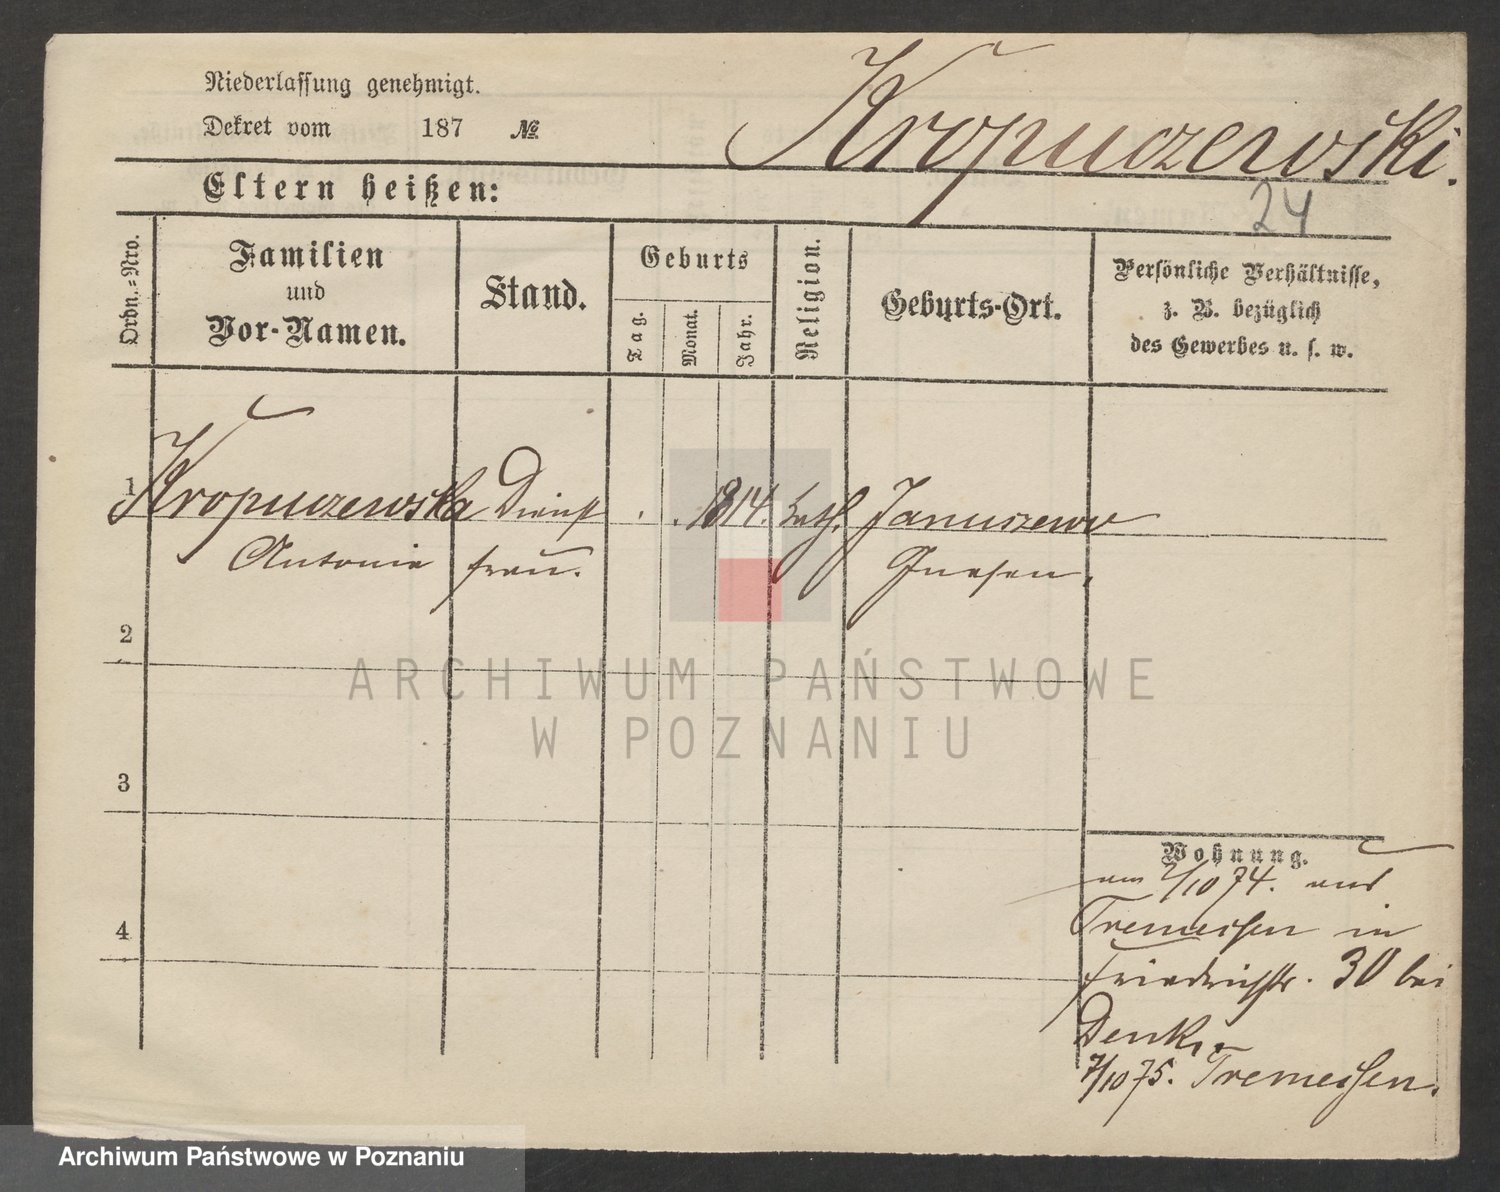 Niederlassung genehmigt.
Dekret vom 187 №
Kropuczewski.
24
Eltern heißen:
Ordn.=Nro.
Familien
und
Vor-Namen.
Stand.
Geburts
Tag.
Monat.
Jahr.
Religion.
Geburts-Ort.
Persönliche Verhältnisse,
z. B. bezüglich
des Gewerbes u. s. w.
1 Kropuczewska Dienst . . 1814. kath. Januszewo
Antonie frau. Gnesen.
2
3
4
Wohnung.
am 7/10 74. aus
Tremessen in
Friedrichstr. 30 bei
Denk.
7/10 75. Tremessen.
ARCHIWUM PAŃSTWOWE
W POZNANIU
Archiwum Państwowe w Poznaniu